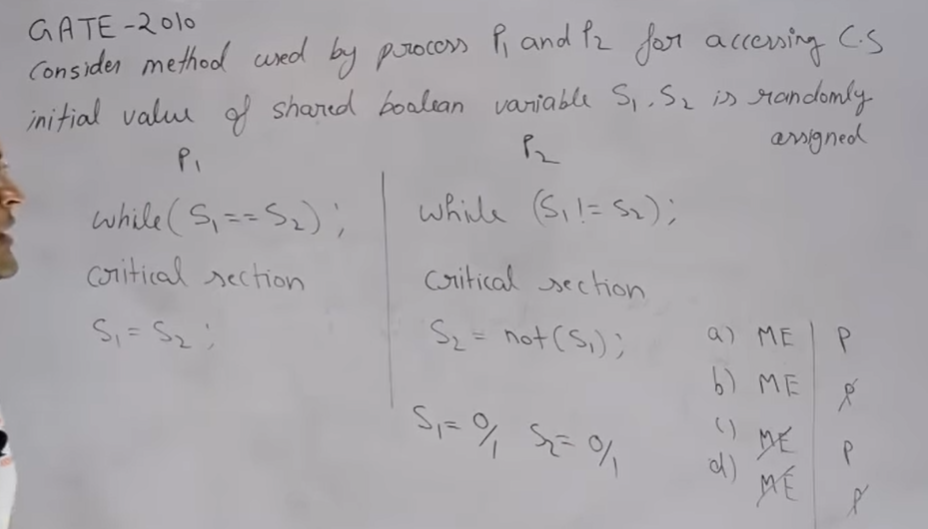 GATE-2010
Consider method used by process P1 and P2 for accessing C.S
initial value of shared boolean variable S1, S2 is randomly
assigned
P1
while(S1==S2);
critical section
S1=S2;
P2
while (S1!=S2);
critical section
S2=not(S1);
S1=0/1 S2=0/1
a) ME | P
b) ME P̸
c) M̸E̸ P
d) M̸E̸ P̸